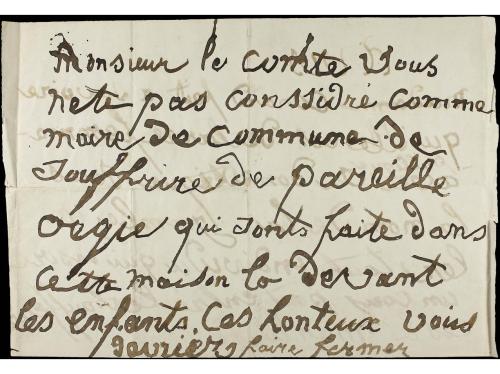 Monsieur le comte vous
nete pas conssidré comme
maire de commune de
souffrire de pareille
orgie qui sonts faite dans
cette maison la devant
les enfants. Ces honteux vous
devriez faire fermer